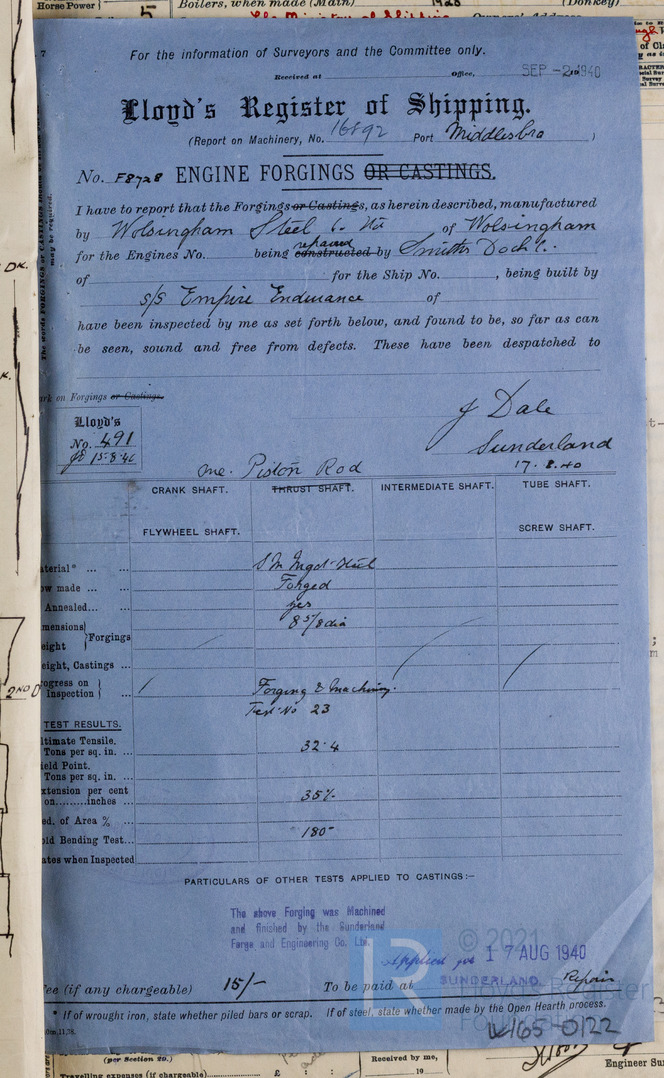 Horse Power
5
Boilers, when made (Main)
1928
(Donkey)
The Ministry of Shipping
Owners' Address
7
For the information of Surveyors and the Committee only.
Received at Office, SEP -2 1940
Lloyd's Register of Shipping.
(Report on Machinery, No. 16892 Port Middlesbro )
No. F8728 ENGINE FORGINGS OR CASTINGS.
I have to report that the Forgings or Castings, as herein described, manufactured
by Wolsingham Steel Co. Ltd of Wolsingham
repaired
for the Engines No. being constructed by Smiths Dock Co.
of for the Ship No. , being built by
s/s Empire Endurance of
have been inspected by me as set forth below, and found to be, so far as can
be seen, sound and free from defects. These have been despatched to
The words FORGINGS or CASTINGS
may be required.
DK.
K.
2ND D
ark on Forgings or Castings.
Lloyd's
No. 491
JD 15.8.40
J Dale
Sunderland
17.8.40
One. Piston Rod
CRANK SHAFT. THRUST SHAFT. INTERMEDIATE SHAFT. TUBE SHAFT.
FLYWHEEL SHAFT. SCREW SHAFT.
aterial* ... ... S M Ingot Steel
ow made ... ... Forged
Annealed... ... yes
mensions} 8 5/8 dia
eight } Forgings
eight, Castings ...
rogress on } Forging & Machining.
Inspection } ... Test No 23
TEST RESULTS.
ltimate Tensile.
Tons per sq. in. ... 32.4
ield Point.
Tons per sq. in. ...
xtension per cent
on.........inches ... 35%
ed. of Area % ...
old Bending Test... 180°
ates when Inspected
PARTICULARS OF OTHER TESTS APPLIED TO CASTINGS:—
The above Forging was Machined
and finished by the Sunderland
Forge and Engineering Co. Ltd.
© 2021
Applied for 17 AUG 1940
ee (if any chargeable) 15/- To be paid at SUNDERLAND. Repair
* If of wrought iron, state whether piled bars or scrap. If of steel, state whether made by the Open Hearth process.
0m,11,38.
W165-0122
(per Section 29.)
Travelling expenses (if chargeable) £ : :
Received by me,
19
Engineer Su